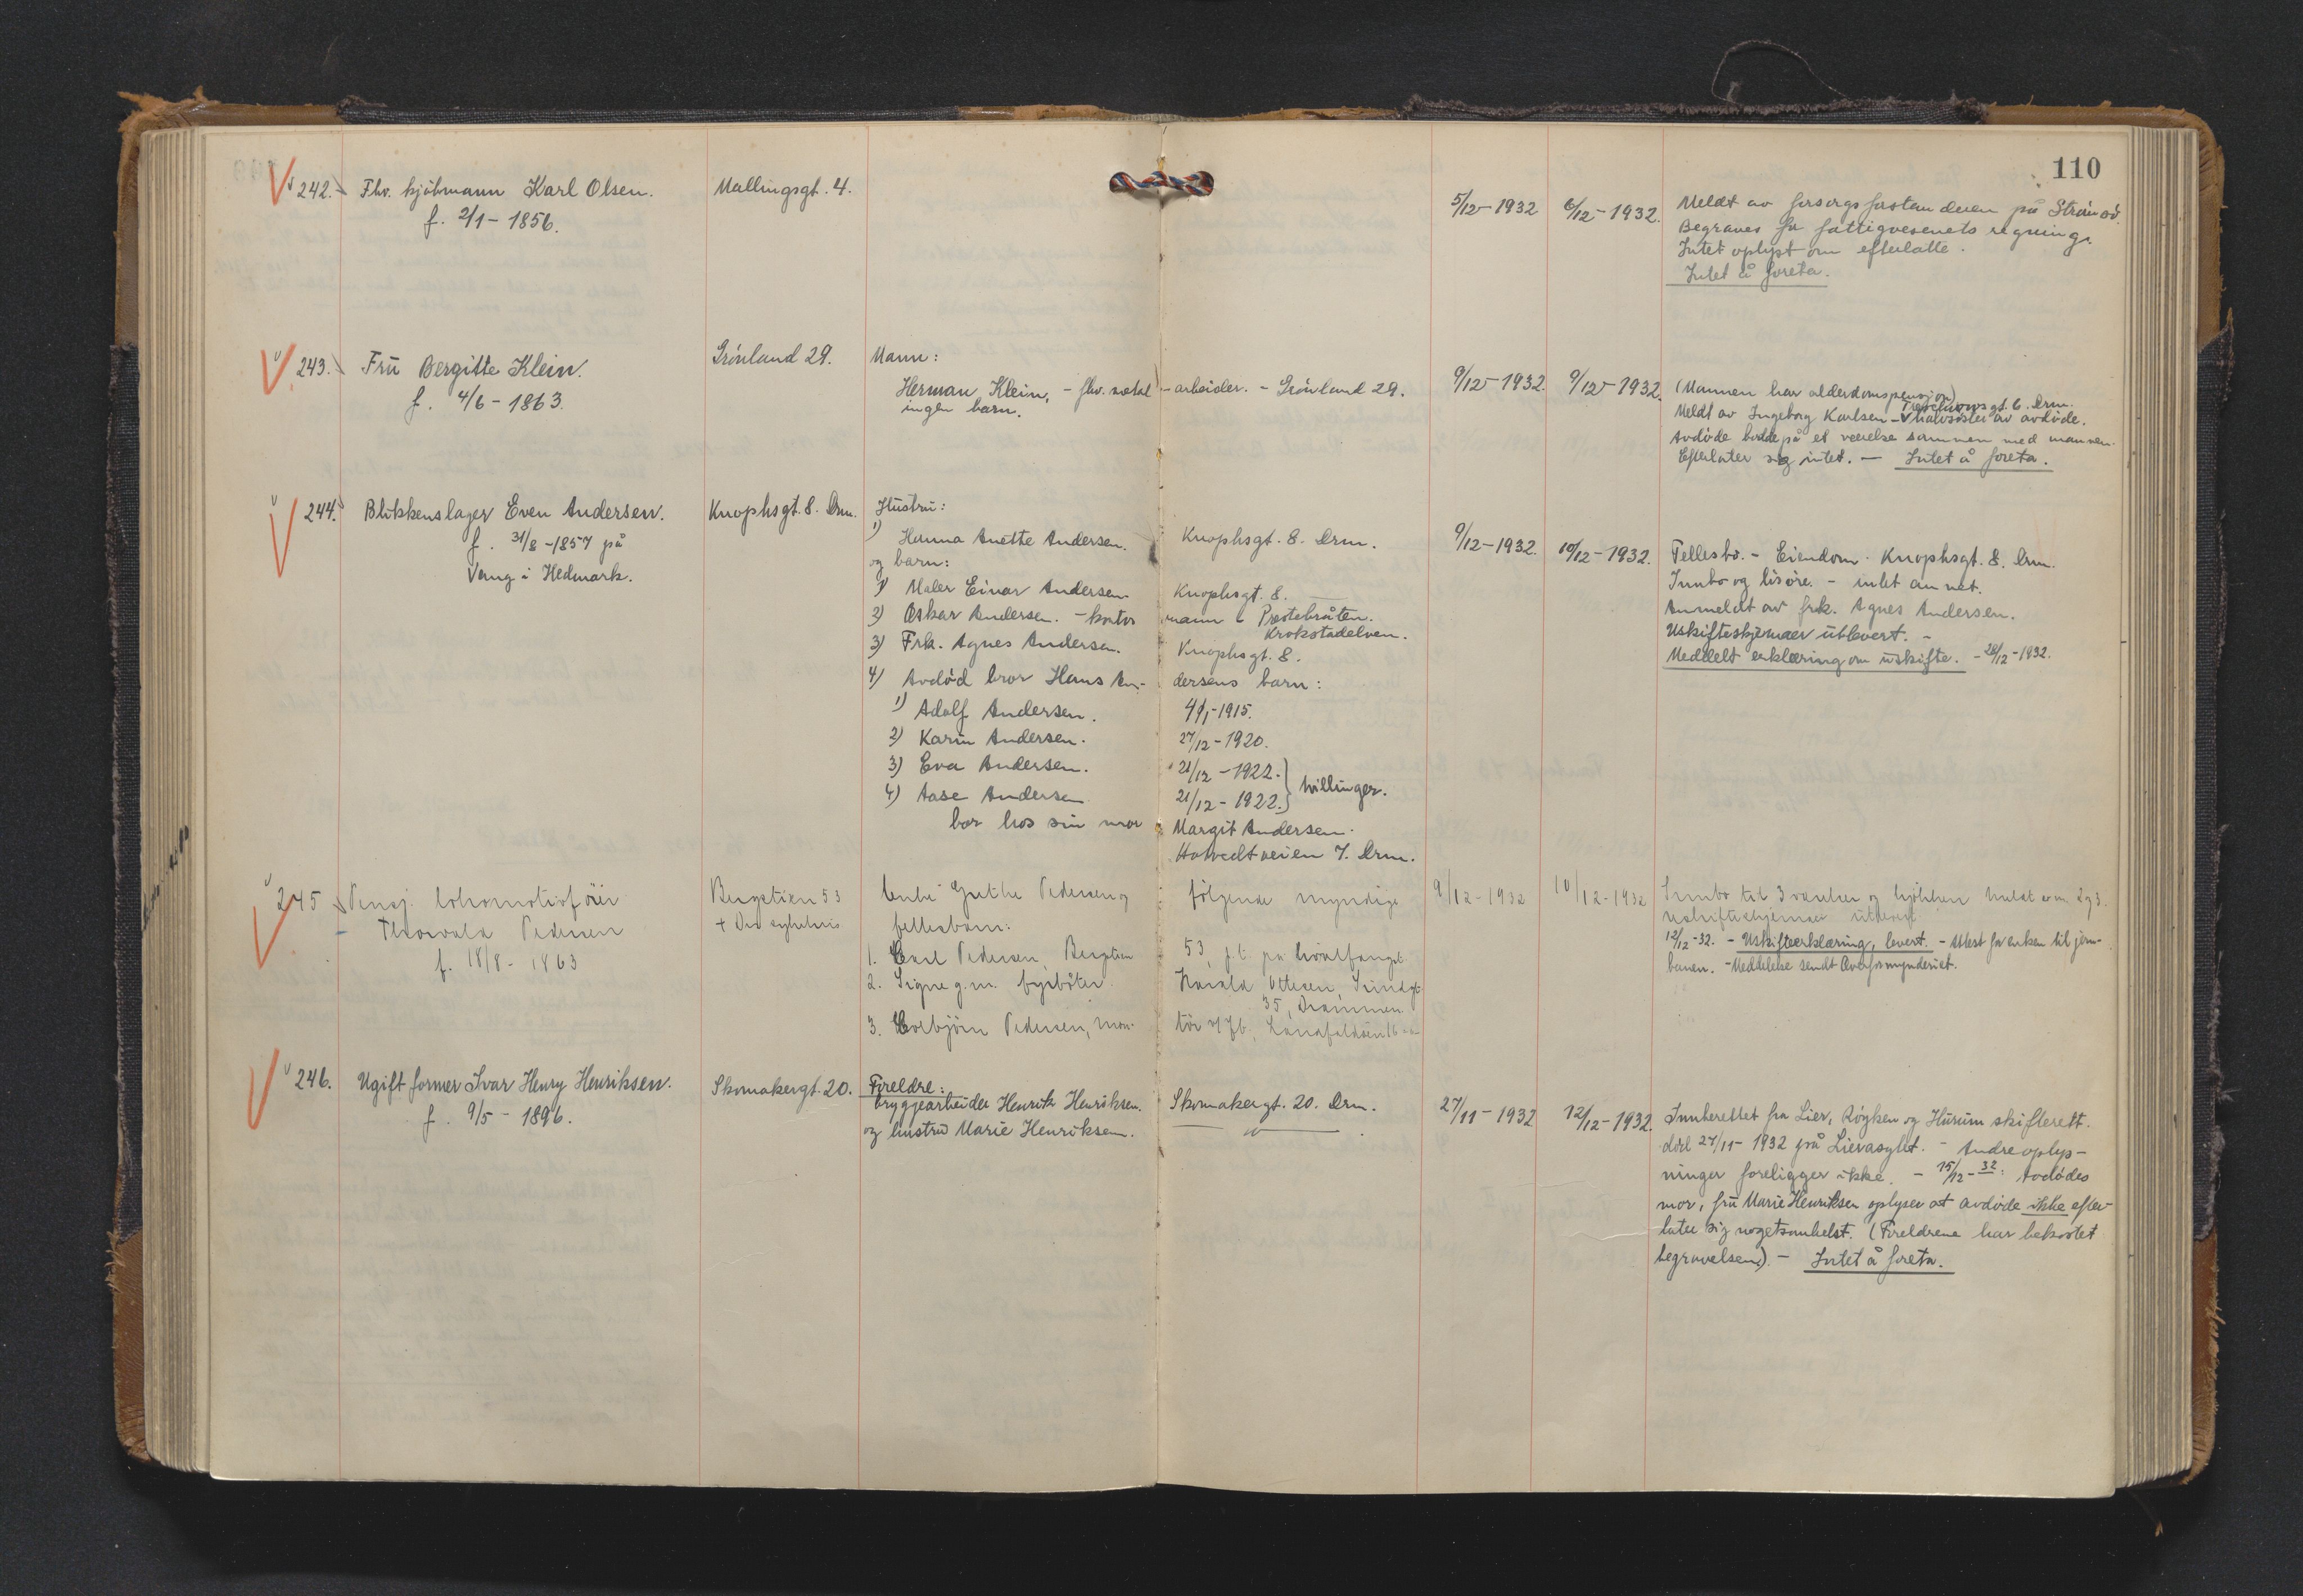 110
242. Fhv. kjöbmann Karl Olsen.
f. 2/1 - 1856.
Mallingsgt. 4.
5/12 - 1932
6/12 - 1932.
Meldt av forsorgsforstanderen på Strømsö.
Begraves for fattigvesenets regning.
Intet oplyst om efterlatte.
Intet å foreta.
243. Fru Bergitte Klein.
f. 4/6 - 1863.
Grönland 29.
Mann:
Herman Klein, - fhv. metal - arbeider. - Grönland 29.
ingen barn.
9/12 - 1932.
9/12 - 1932.
(Mannen har alderdomspensjon)
Treschowsgt. 6. Drm.
Meldt av Ingeborg Karlsen - halvsöster av avdöde.
Avdöde bodde på et værelse sammen med mannen.
Efterlater sig intet. - Intet å foreta.
244. Blikkenslager Even Andersen.
f. 31/8 - 1857 på
Vang i Hedmark.
Knophsgt. 8. Drm.
Hustru:
1) Hanna Anette Andersen. Knophsgt. 8. Drm.
og barn:
1) Maler Einar Andersen Knophsgt. 8.
2) Oskar Andersen. - kontor mann - Prestebråten.
Krokstadelven.
3) Frk. Agnes Andersen. Knophsgt. 8.
4) Avdöd bror Hans An- dersens barn:
1) Adolf Andersen. 4/1 - 1915.
2) Karin Andersen. 27/12 - 1920.
3) Eva Andersen. 21/12 - 1922.
4) Aase Andersen 21/12 - 1922. } tvillinger.
bor hos sin mor Margit Andersen.
Hotvedtveien 7. Drm.
9/12 - 1932.
10/12 - 1932.
Fellesbo. - Eiendom. Knophsgt. 8. Drm.
Innbo og lösöre. - intet annet.
Anmeldt av frk. Agnes Andersen.
Uskifteskjemaer utlevert. -
Meddelt erklæring om uskifte. - 28/12 - 1932.
245 Pensj. lokomotivförer
Thorvald Pedersen
f. 18/8 - 1863
Bergstien 53
+ Drm sykehus
Enke Grethe Pedersen og følgende myndige
fellesbarn:
1. Carl Pedersen, Bergstien 53, f.t. på hvalfangst
2. Signe g.m. fyrböter Harald Ottesen,
35, Drammen
3. Torbjörn Pedersen, mon- tör
9/12 - 1932
10/12 - 1932
Innbo til 3 værelser og kjökken meldt av nr. 2 og 3.
uskifteskjemaer utlevert
12/12 - 32. - Uskifteerklæring, levert. - Attest for enken til jern-
banen. - Meddelelse sendt Overformynderiet.
246. Ugift former Ivar Henry Henriksen.
f. 9/5 - 1896.
Skomakergt. 20.
Foreldre:
bryggearbeider Henrik Henriksen. Skomakergt. 20. Drm.
og hustru Marie Henriksen.
27/11 - 1932
12/12 - 1932.
Innberettet fra Lier, Röyken og Hurum skifterett.
död 27/11 - 1932 på Lierasylet. - Andre oplys-
ninger foreligger ikke. - 15/12 - 32: Avdödes
mor, fru Marie Henriksen oplyser at avdöde ikke efter-
later sig nogetsomhelst. (Foreldrene har bekostet
begravelsen). - Intet å foreta.